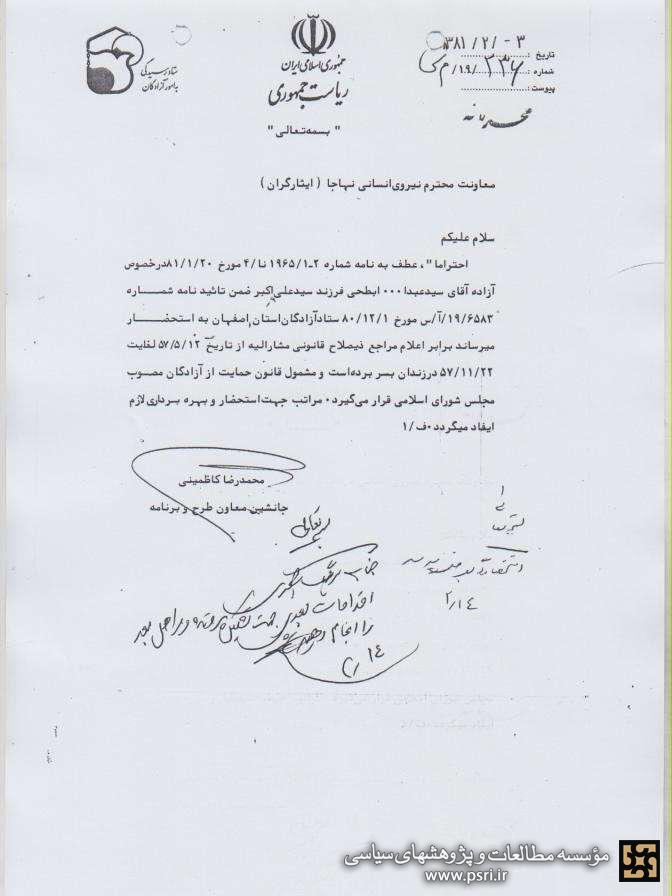 تاریخ : ۱۳۸۱/۲/۰۳
شماره :
پیوست :
محرمانه
جمهوری اسلامی ایران
ریاست جمهوری
ستاد رسیدگی
به امور آزادگان
" بسمه تعالی "
معاونت محترم نیروی انسانی نهاجا ( ایثارگران )
سلام علیکم
احتراما" ، عطف به نامه شماره ۲-۱۹۶۵/۱ نا/۴ مورخ ۸۱/۱/۲۰ درخصوص
آزاده آقای سیدعبدا۰۰۰ ابطحی فرزند سیدعلی اکبر ضمن تائید نامه شماره
۱۹/۶۵۸۳/آ/س مورخ ۸۰/۱۲/۱ ستاد آزادگان استان اصفهان به استحضار
میرساند برابر اعلام مراجع ذیصلاح قانونی مشارالیه از تاریخ ۵۷/۵/۱۲ لغایت
۵۷/۱۱/۲۲ درزندان بسر برده است و مشمول قانون حمایت از آزادگان مصوب
مجلس شورای اسلامی قرار می گیرد۰ مراتب جهت استحضار و بهره برداری لازم
ایفاد میگردد ۰ف/۱
محمدرضا کاظمینی
جانشین معاون طرح و برنامه
بسمه تعالی
اقدامات بعدی جهت
را انجام دهید
۲/۱۴
۲/۱۴
مؤسسه مطالعات و پژوهشهای سیاسی
www.psri.ir